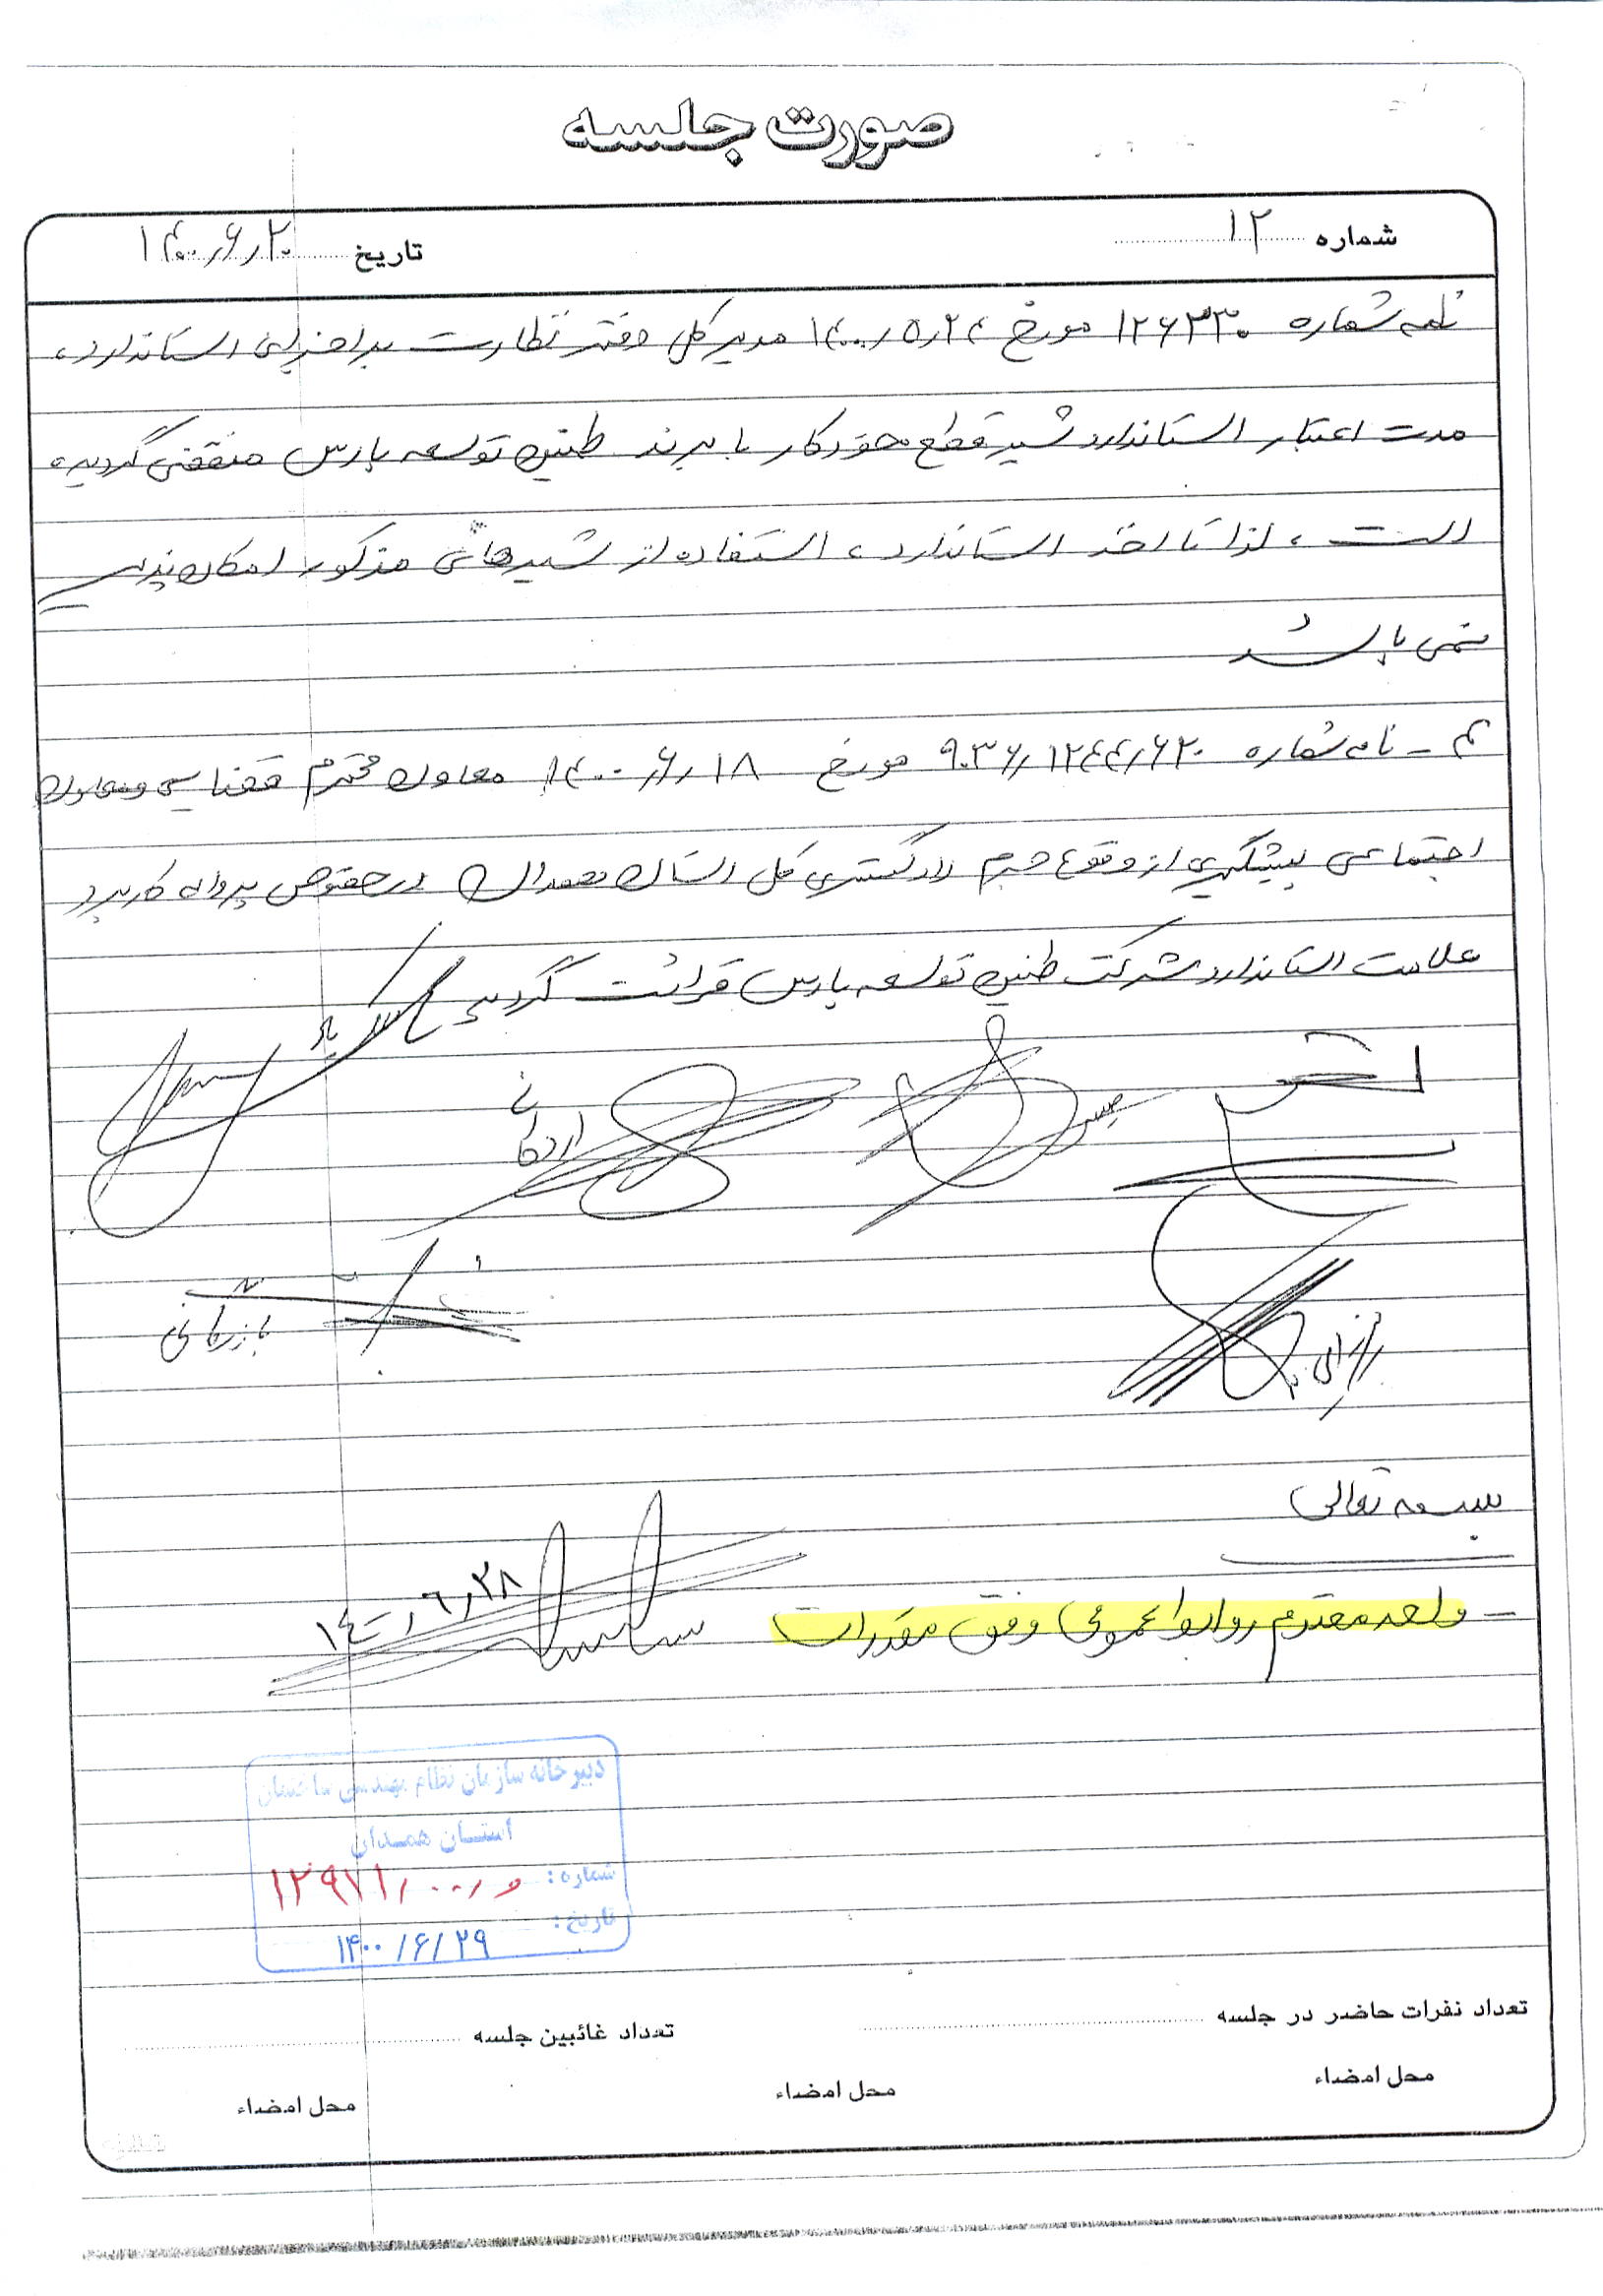 صورت جلسه
شماره ۱۲
تاریخ ۱۴۰۰/۶/۲۰
نامه شماره ۱۲۶۳۳۰ مورخ ۱۴۰۰/۵/۲۴ مدیر کل دفتر نظارت بر اجرای استاندارد،
مدت اعتبار استاندارد شیر قطع خودکار با برند طنین توسعه پارس منقضی گردیده
است ، لذا تا اخذ استاندارد ، استفاده از شیرهای مذکور امکان پذیر
نمی باشد
۴ - نامه شماره ۹۰۳۶/۱۲۴۴/۶۲۰ مورخ ۱۴۰۰/۶/۱۸ معاون محترم قضایی و معاون
اجتماعی پیشگیری از وقوع جرم دادگستری کل استان همدان در خصوص پروانه کاربرد
علامت استاندارد شرکت طنین توسعه پارس قرائت گردید
اردکانی
بازرگانی
بسمه تعالی
- واحد محترم روابط عمومی وفق مقررات
۱۴۰۰/۶/۲۸
دبیرخانه سازمان نظام مهندسی ساختمان
استان همدان
شماره: ۱۲۹۷۱/۰۰/و
تاریخ: ۱۴۰۰/۶/۲۹
تعداد نفرات حاضر در جلسه
تعداد غائبین جلسه
محل امضاء
محل امضاء
محل امضاء